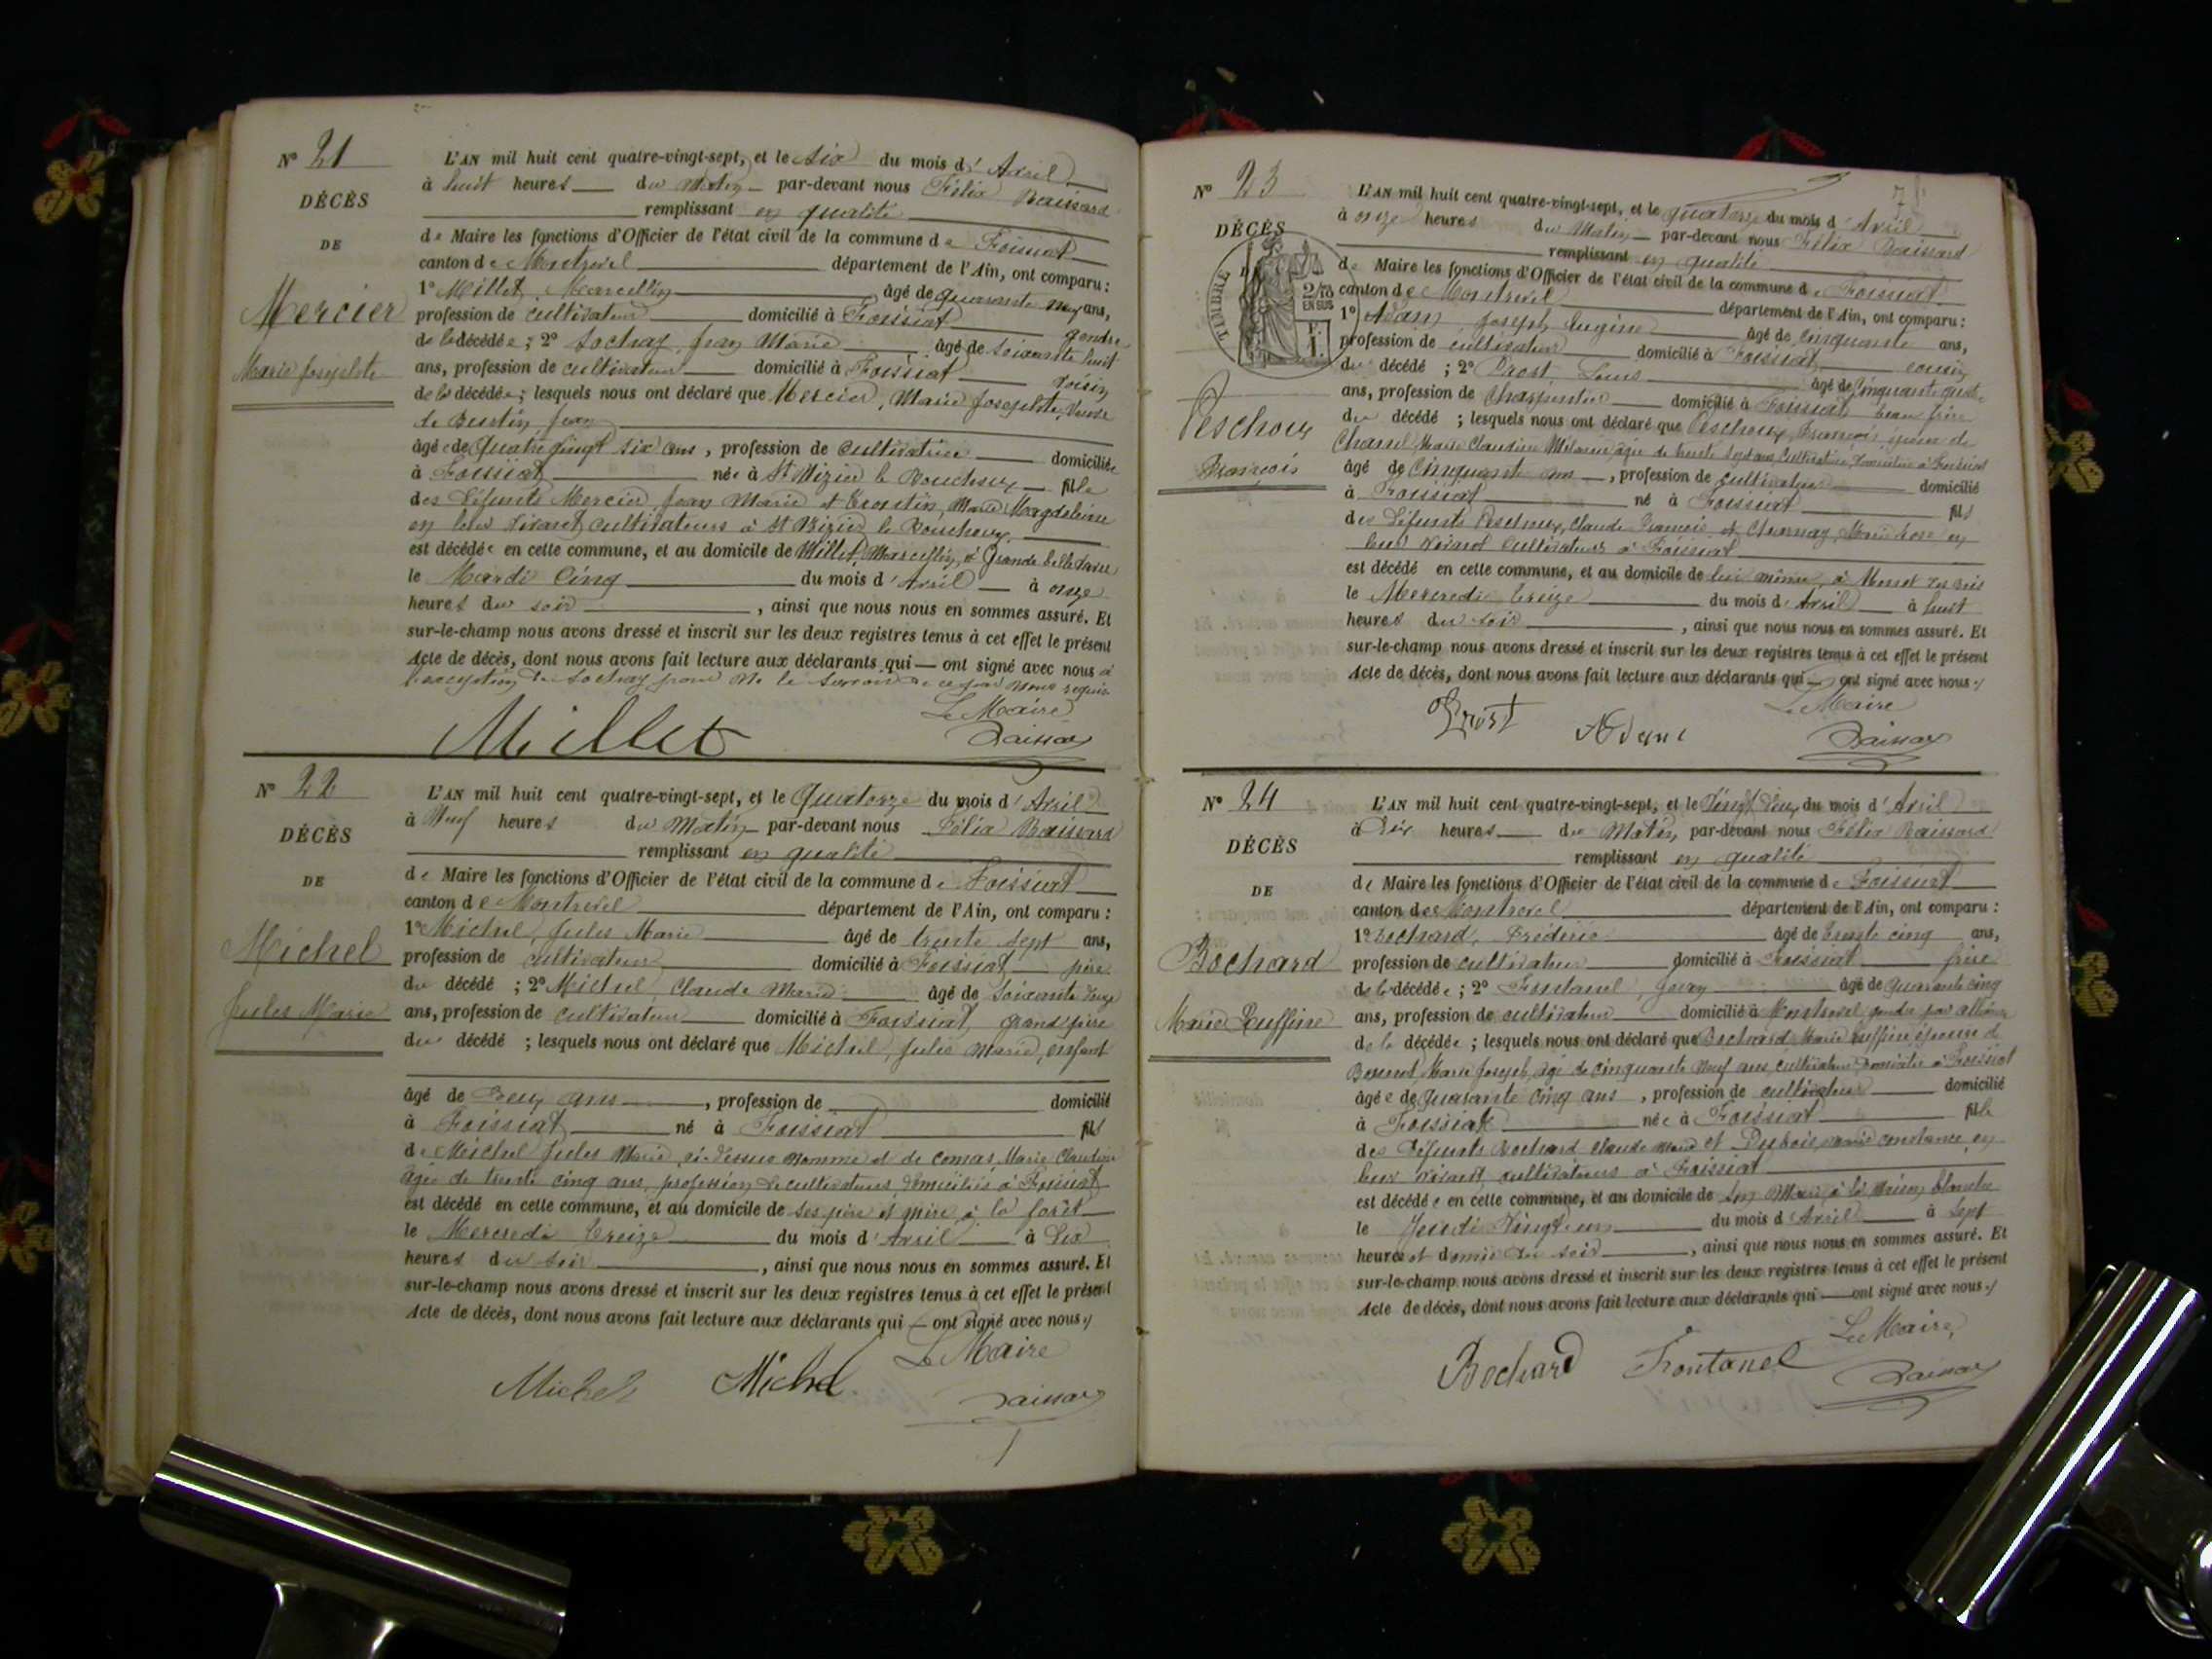 N° 21
DÉCÈS
DE
Mercier
Marie Josephte
L'AN mil huit cent quatre-vingt-sept, et le six du mois d'Avril
à huit heures du Matin par-devant nous Félix Baissard
remplissant en qualité
de Maire les fonctions d'Officier de l'état civil de la commune de Foissiat
canton de Montrevel département de l'Ain, ont comparu :
1° Millet, Marcellin âgé de quarante neuf ans,
profession de cultivateur domicilié à Foissiat gendre
de la décédée ; 2° Sochay, Jean Marie âgé de soixante huit
ans, profession de cultivateur domicilié à Foissiat voisin
de la décédée ; lesquels nous ont déclaré que Mercier, Marie Josephte, Veuve
de Jean
âgée de quatre vingt six ans, profession de cultivatrice domiciliée
à Foissiat née à St Nizier le Bouchoux fille
des défunts Mercier, Jean Marie et Marie Magdeleine
en leur vivant cultivateurs à St Nizier le Bouchoux
est décédée en cette commune, et au domicile de Millet, Marcellin, à Grande
le Mardi Cinq du mois d'Avril à onze
heures du soir, ainsi que nous nous en sommes assuré. Et
sur-le-champ nous avons dressé et inscrit sur les deux registres tenus à cet effet le présent
Acte de décès, dont nous avons fait lecture aux déclarants qui ont signé avec nous à
l'exception de Sochay pour ne le savoir de ce par nous requis
Le Maire
Millet
Baissard
N° 22
DÉCÈS
DE
Michel
Jules Marie
L'AN mil huit cent quatre-vingt-sept, et le Quatorze du mois d'Avril
à Neuf heures du Matin par-devant nous Félix Baissard
remplissant en qualité
de Maire les fonctions d'Officier de l'état civil de la commune de Foissiat
canton de Montrevel département de l'Ain, ont comparu :
1° Michel, Jules Marie âgé de trente sept ans,
profession de cultivateur domicilié à Foissiat père
du décédé ; 2° Michel, Claude Marie âgé de soixante
ans, profession de cultivateur domicilié à Foissiat, grand père
du décédé ; lesquels nous ont déclaré que Michel, Jules Marie, enfant
âgé de Deux ans, profession de domicilié
à Foissiat né à Foissiat fils
de Michel Jules Marie, ci-dessus nommé et de Comas, Marie Claudine
âgée de trente cinq ans, profession de cultivateurs, domiciliés à Foissiat
est décédé en cette commune, et au domicile de ses père et mère, à la forêt
le Mercredi treize du mois d'Avril à six
heures du soir, ainsi que nous nous en sommes assuré. Et
sur-le-champ nous avons dressé et inscrit sur les deux registres tenus à cet effet le présent
Acte de décès, dont nous avons fait lecture aux déclarants qui ont signé avec nous
Le Maire
Michel Michel
Baissard
N° 23
DÉCÈS
TIMBRE
2/10
EN SUS
Peschoux
François
L'AN mil huit cent quatre-vingt-sept, et le quatorze du mois d'Avril
à onze heures du Matin par-devant nous Félix Baissard
remplissant en qualité
de Maire les fonctions d'Officier de l'état civil de la commune de Foissiat
canton de Montrevel département de l'Ain, ont comparu :
1° Adam Joseph Eugène âgé de cinquante ans,
profession de cultivateur domicilié à Foissiat cousin
du décédé ; 2° Prost, Louis âgé de cinquante quatre
ans, profession de charpentier domicilié à Foissiat beau frère
du décédé ; lesquels nous ont déclaré que Peschoux, François époux de
Marie Claudine âgée de trente sept ans, cultivatrice, domiciliée à Foissiat
âgé de Cinquante ans, profession de cultivateur domicilié
à Foissiat né à Foissiat fils
des défunts Peschoux, Claude François et Charnay, Marie Rose en
leur vivant cultivateurs à Foissiat
est décédé en cette commune, et au domicile de lui même, à
le Mercredi treize du mois d'Avril à huit
heures du soir, ainsi que nous nous en sommes assuré. Et
sur-le-champ nous avons dressé et inscrit sur les deux registres tenus à cet effet le présent
Acte de décès, dont nous avons fait lecture aux déclarants qui ont signé avec nous
Le Maire
Prost Adam
Baissard
N° 24
DÉCÈS
DE
Bochard
Marie Ruffine
L'AN mil huit cent quatre-vingt-sept, et le Vingt deux du mois d'Avril
à Dix heures du Matin, par-devant nous Félix Baissard
remplissant en qualité
de Maire les fonctions d'Officier de l'état civil de la commune de Foissiat
canton de Montrevel département de l'Ain, ont comparu :
1° Bochard, Frédéric âgé de trente cinq ans,
profession de cultivateur domicilié à Foissiat frère
de la décédée ; 2° Fontanel, Jean âgé de quarante cinq
ans, profession de cultivateur domicilié à Montrevel gendre par alliance
de la décédée ; lesquels nous ont déclaré que Bochard Marie Ruffine épouse de
Marie Joseph, âgé de cinquante neuf ans cultivateur, domicilié à Foissiat
âgée de quarante cinq ans, profession de cultivateur domicilié
à Foissiat née à Foissiat fille
des défunts Bochard Claude Marie et Dubois, Marie Constance, en
leur vivant, cultivateurs à Foissiat
est décédée en cette commune, et au domicile de son Mari, à la
le Jeudi Vingt un du mois d'Avril à sept
heures et demie du soir, ainsi que nous nous en sommes assuré. Et
sur-le-champ nous avons dressé et inscrit sur les deux registres tenus à cet effet le présent
Acte de décès, dont nous avons fait lecture aux déclarants qui ont signé avec nous
Le Maire,
Bochard Fontanel
Baissard